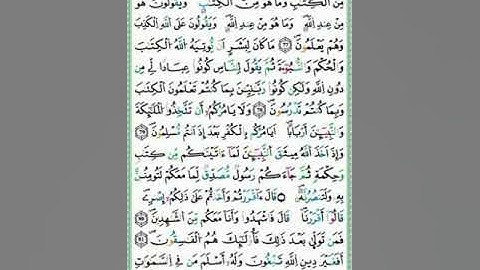 مِنَ اَلْكِتَٰبِ وَمَا هُوَ مِنَ اَلْكِتَٰبِ وَيَقُولُونَ هُوَ
مِنْ عِندِ اِللَّهِ وَمَا هُوَ مِنْ عِندِ اِللَّهِ وَيَقُولُونَ عَلَى اَللَّهِ اِلْكَذِبَ
وَهُمْ يَعْلَمُونَۖ ٧٧ مَا كَانَ لِبَشَرٍ اَنْ يُّوتِيَهُ اُللَّهُ اُلْكِتَٰبَ
وَالْحُكْمَ وَالنُّبُوٓءَةَ ثُمَّ يَقُولَ لِلنَّاسِ كُونُواْ عِبَادا لِّے مِن
دُونِ اِللَّهِ وَلَٰكِن كُونُواْ رَبَّٰنِيِّـۧنَ بِمَا كُنتُمْ تَعْلَمُونَ اَلْكِتَٰبَ
وَبِمَا كُنتُمْ تَدْرُسُونَۖ ٧٨ وَلَا يَامُرُكُمُۥٓ أَن تَتَّخِذُواْ اُلْمَلَٰٓئِكَةَ
وَالنَّبِيٓـِٕۧنَ أَرْبَاباًۖ اَيَامُرُكُم بِالْكُفْرِ بَعْدَ إِذَ اَنتُم مُّسْلِمُونَۖ ٧٩
وَإِذَ اَخَذَ اَللَّهُ مِيثَٰقَ اَلنَّبِيٓـِٕۧنَ لَمَآ ءَاتَيْنَٰكُم مِّن كِتَٰبٖ
وَحِكْمَةٖ ثُمَّ جَآءَكُمْ رَسُولٞ مُّصَدِّقٞ لِّمَا مَعَكُمْ لَتُومِنُنَّ
بِهِۦ وَلَتَنصُرُنَّهُۥۖ قَالَ ءَآقْرَرْتُمْ وَأَخَذتُّمْ عَلَىٰ ذَٰلِكُمُۥٓ إِصْرِےۖ
قَالُوٓاْ أَقْرَرْنَاۖ قَالَ فَاشْهَدُواْ وَأَنَا مَعَكُم مِّنَ اَلشَّٰهِدِينَۖ ٨٠
فَمَن تَوَلَّىٰ بَعْدَ ذَٰلِكَ فَأُوْلَٰٓئِكَ هُمُ اُلْفَٰسِقُونَۖ ٨١
أَفَغَيْرَ دِينِ اِللَّهِ تَبْغُونَ وَلَهُۥٓ أَسْلَمَ مَن فِے اِلسَّمَٰوَٰتِ